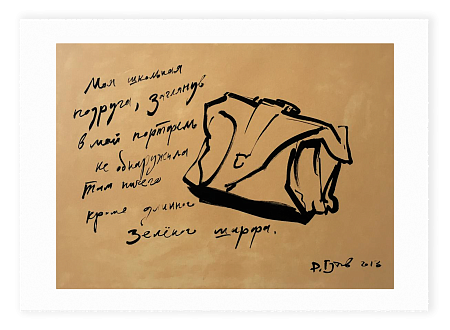 Моя школьная
подруга, заглянув
в мой портфель
не обнаружила
там ничего
кроме длинного
зелёного шарфа.
2016